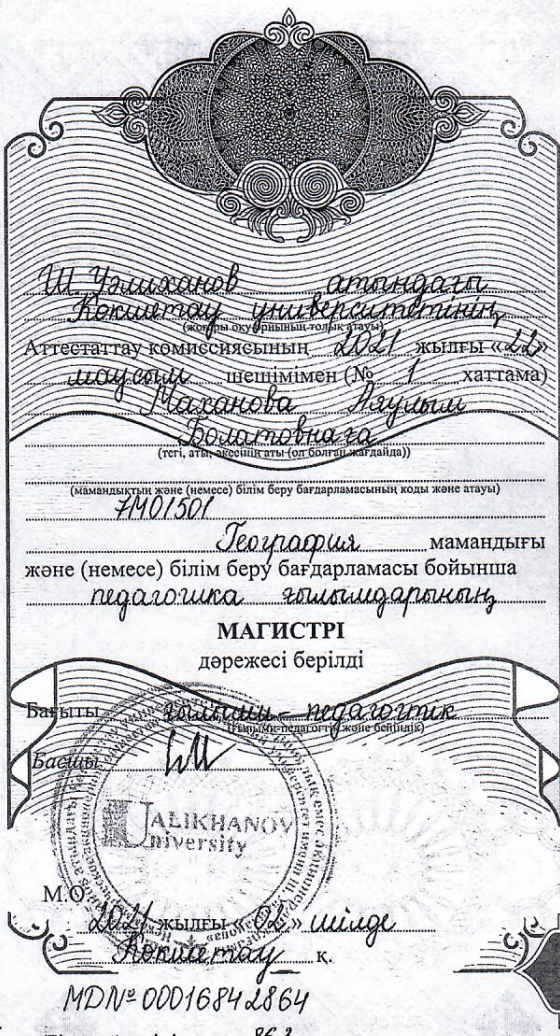 Ш. Уәлиханов атындағы
Көкшетау университетінің
(жоғары оқу орнының толық атауы)
Аттестаттау комиссиясының 2021 жылғы «22»
маусым шешімімен (№ 1 хаттама)
Маханова Аяулым
Болатовнаға
(тегі, аты, әкесінің аты (ол болған жағдайда))
(мамандықтың және (немесе) білім беру бағдарламасының коды және атауы)
7М01501
География мамандығы
және (немесе) білім беру бағдарламасы бойынша
педагогика ғылымдарының
МАГИСТРІ
дәрежесі берілді
Бағыты ғылыми-педагогтік
(ғылыми-педагогтік және бейіндік)
Басшы
UALIKHANOV
University
М.О.
2021 жылғы «02» шілде
Көкшетау қ.
MD№ 00016842864